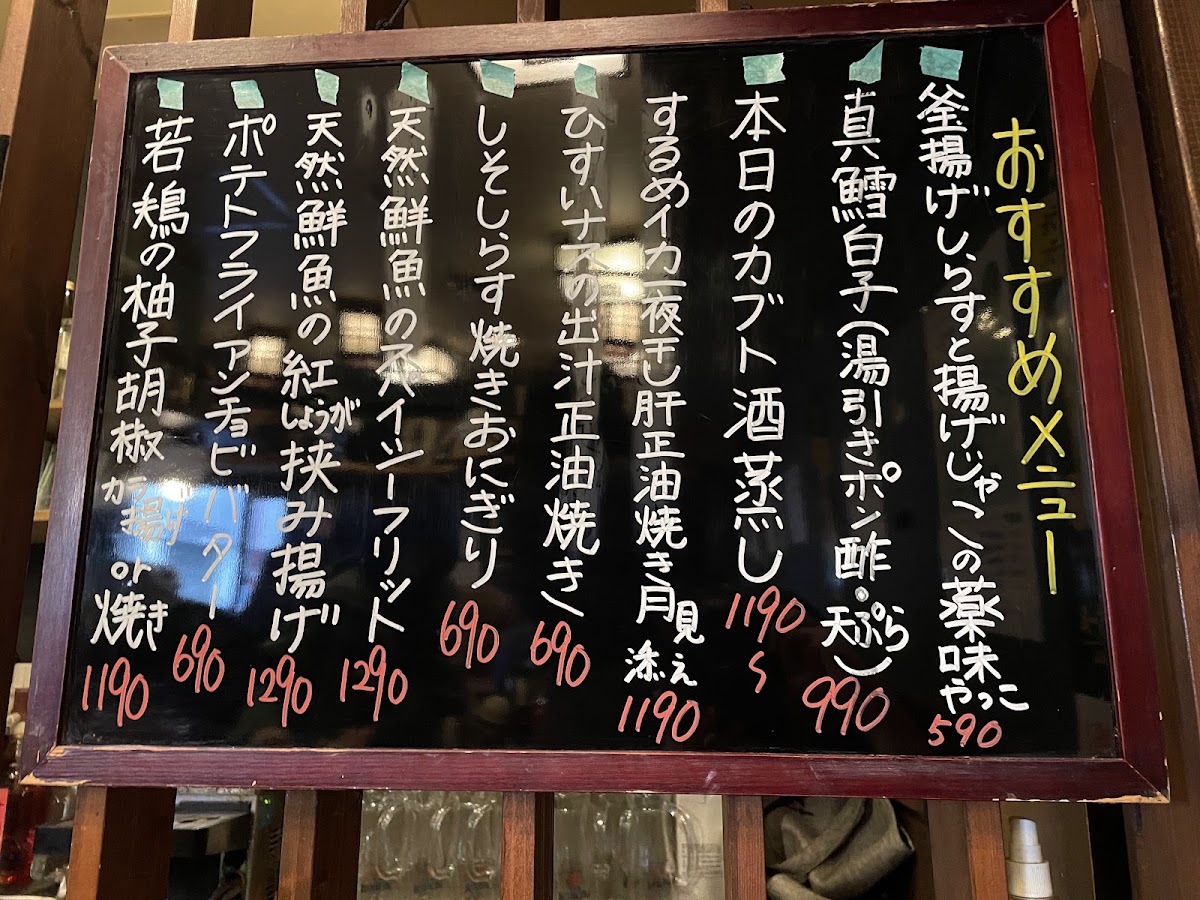 おすすめメニュー
釜揚げしらすと揚げじゃこの薬味やっこ
590
真鱈白子(湯引きポン酢・天ぷら)
990
本日のカブト酒蒸し
1190〜
するめイカ一夜干し肝正油焼き月見添え
1190
ひすいナスの出汁正油焼き
690
しそしらす焼きおにぎり
690
天然鮮魚のスパイシーフリット
1290
天然鮮魚の紅しょうが挟み揚げ
1290
ポテトフライアンチョビバター
690
若鶏の柚子胡椒カラ揚げor焼き
1190